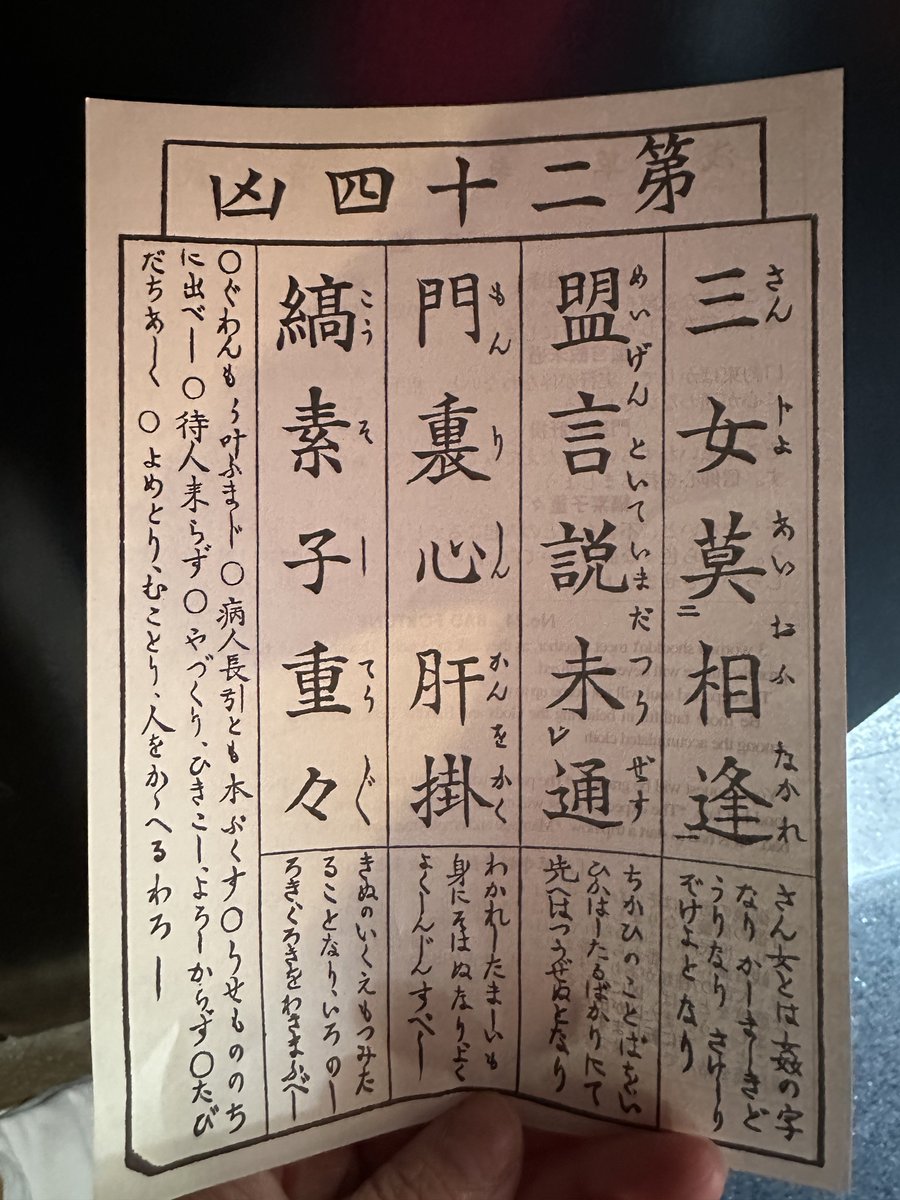 第二十四凶
三女莫相逢
さんぢよあいおふなかれ
さん女とは姦の字
なり かしましきど
うりなり さけしり
ぞけよとなり
盟言説未通
めいげんといていまだつうぜず
ちかひのことばをい
ひかはしたるばかりにて
先へはつうぜぬとなり
門裏心肝掛
もんりしんかんをかく
わかれしたましいも
身にそはぬなり、よく
よくしんじんすべし
縞素子重々
こうそしてうじく
きぬのいくえもつみた
ることなり、いろのし
ろきくろきをわきまふべし
○ぐわんもう叶ふまじ ○病人長引とも本ぷくす○うせもののち
に出べし ○待人来らず ○やづくり、ひきこし、よろしからず○たび
だちあしく ○よめとり、むことり、人をかゝへるわろし